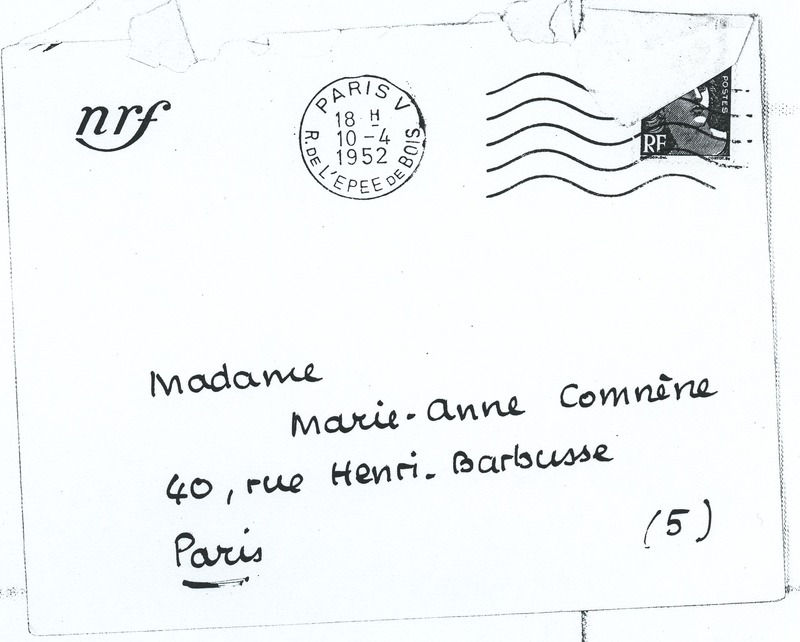 nrf
PARIS V
18 H
10-4
1952
R. DE L'EPEE DE BOIS
POSTES
RF
Madame
Marie-Anne Comnène
40, rue Henri-Barbusse
Paris
(5)